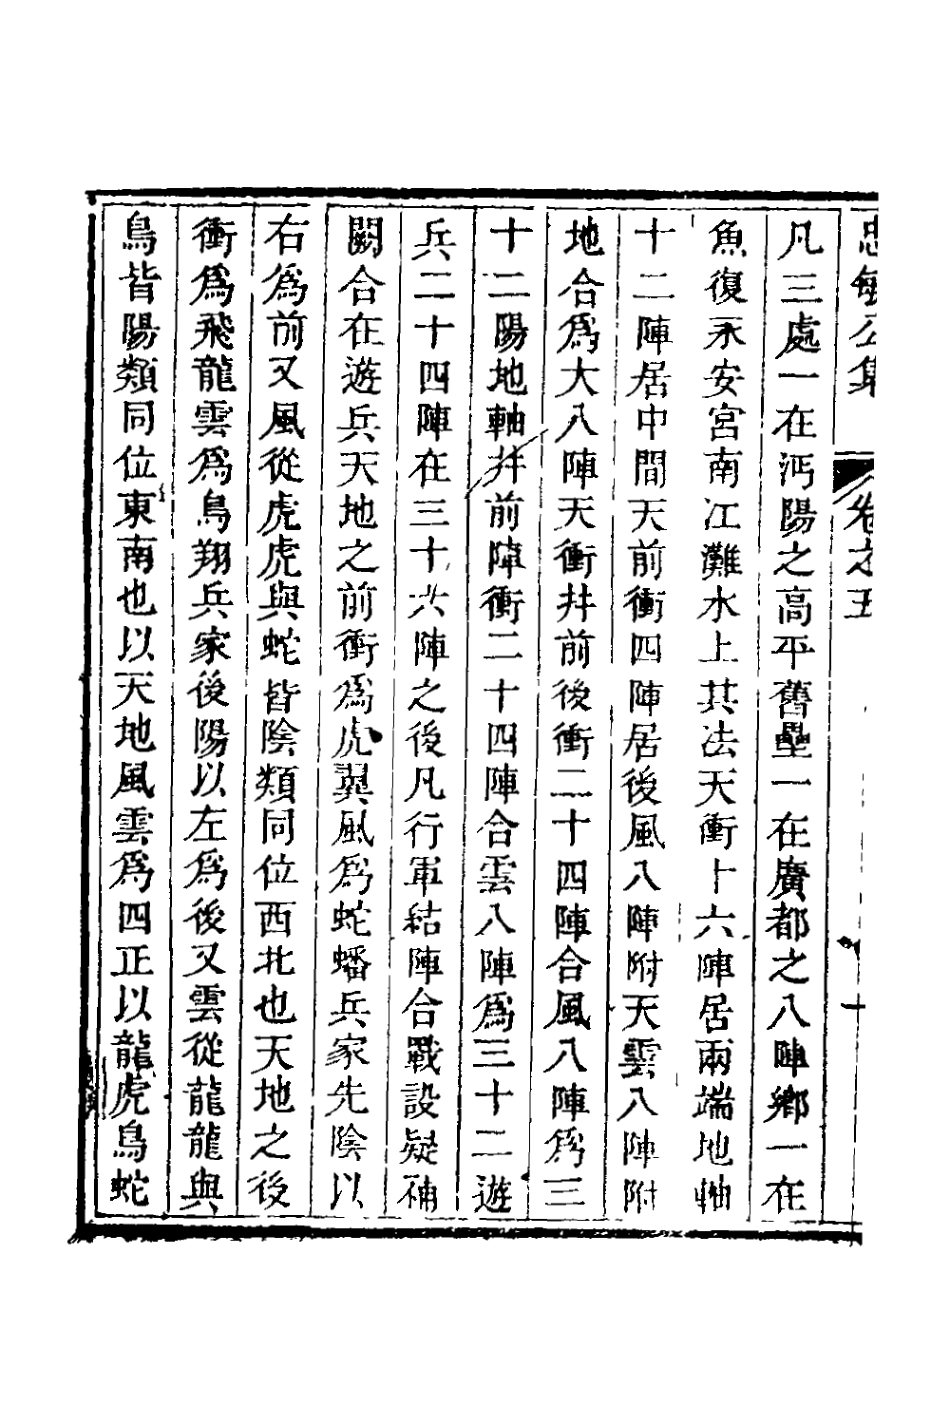 忠敏公集 卷之五 十
凡三處一在沔陽之高平舊壘一在廣都之八陣鄉一在
魚復永安宮南江灘水上其法天衝十六陣居兩端地軸
十二陣居中間天前衝四陣居後風八陣附天雲八陣附
地合爲大八陣天衝并前後衝二十四陣合風八陣爲三
十二陽地軸并前陣衝二十四陣合雲八陣爲三十二遊
兵二十四陣在三十六陣之後凡行軍結陣合戰設疑補
闕合在遊兵天地之前衝爲虎翼風爲蛇蟠兵家先陰以
右爲前又風從虎虎與蛇皆陰類同位西北也天地之後
衝爲飛龍雲爲鳥翔兵家後陽以左爲後又雲從龍龍與
鳥皆陽類同位東南也以天地風雲爲四正以龍虎鳥蛇